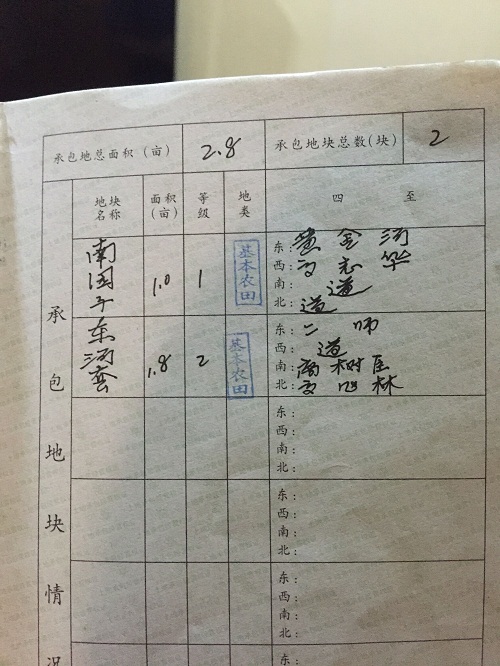 承包地总面积（亩） 2.8 承包地块总数(块) 2
地块名称 面积(亩) 等级 地类 四至
承包地块情况
南园子 1.0 1 基本农田
东：黄金河
西：马志华
南：道
北：道
东河套 1.8 2 基本农田
东：二师
西：道
南：树
北：林
东：
西：
南：
北：
东：
西：
南：
北：
东：
西：
南：
北：
东：